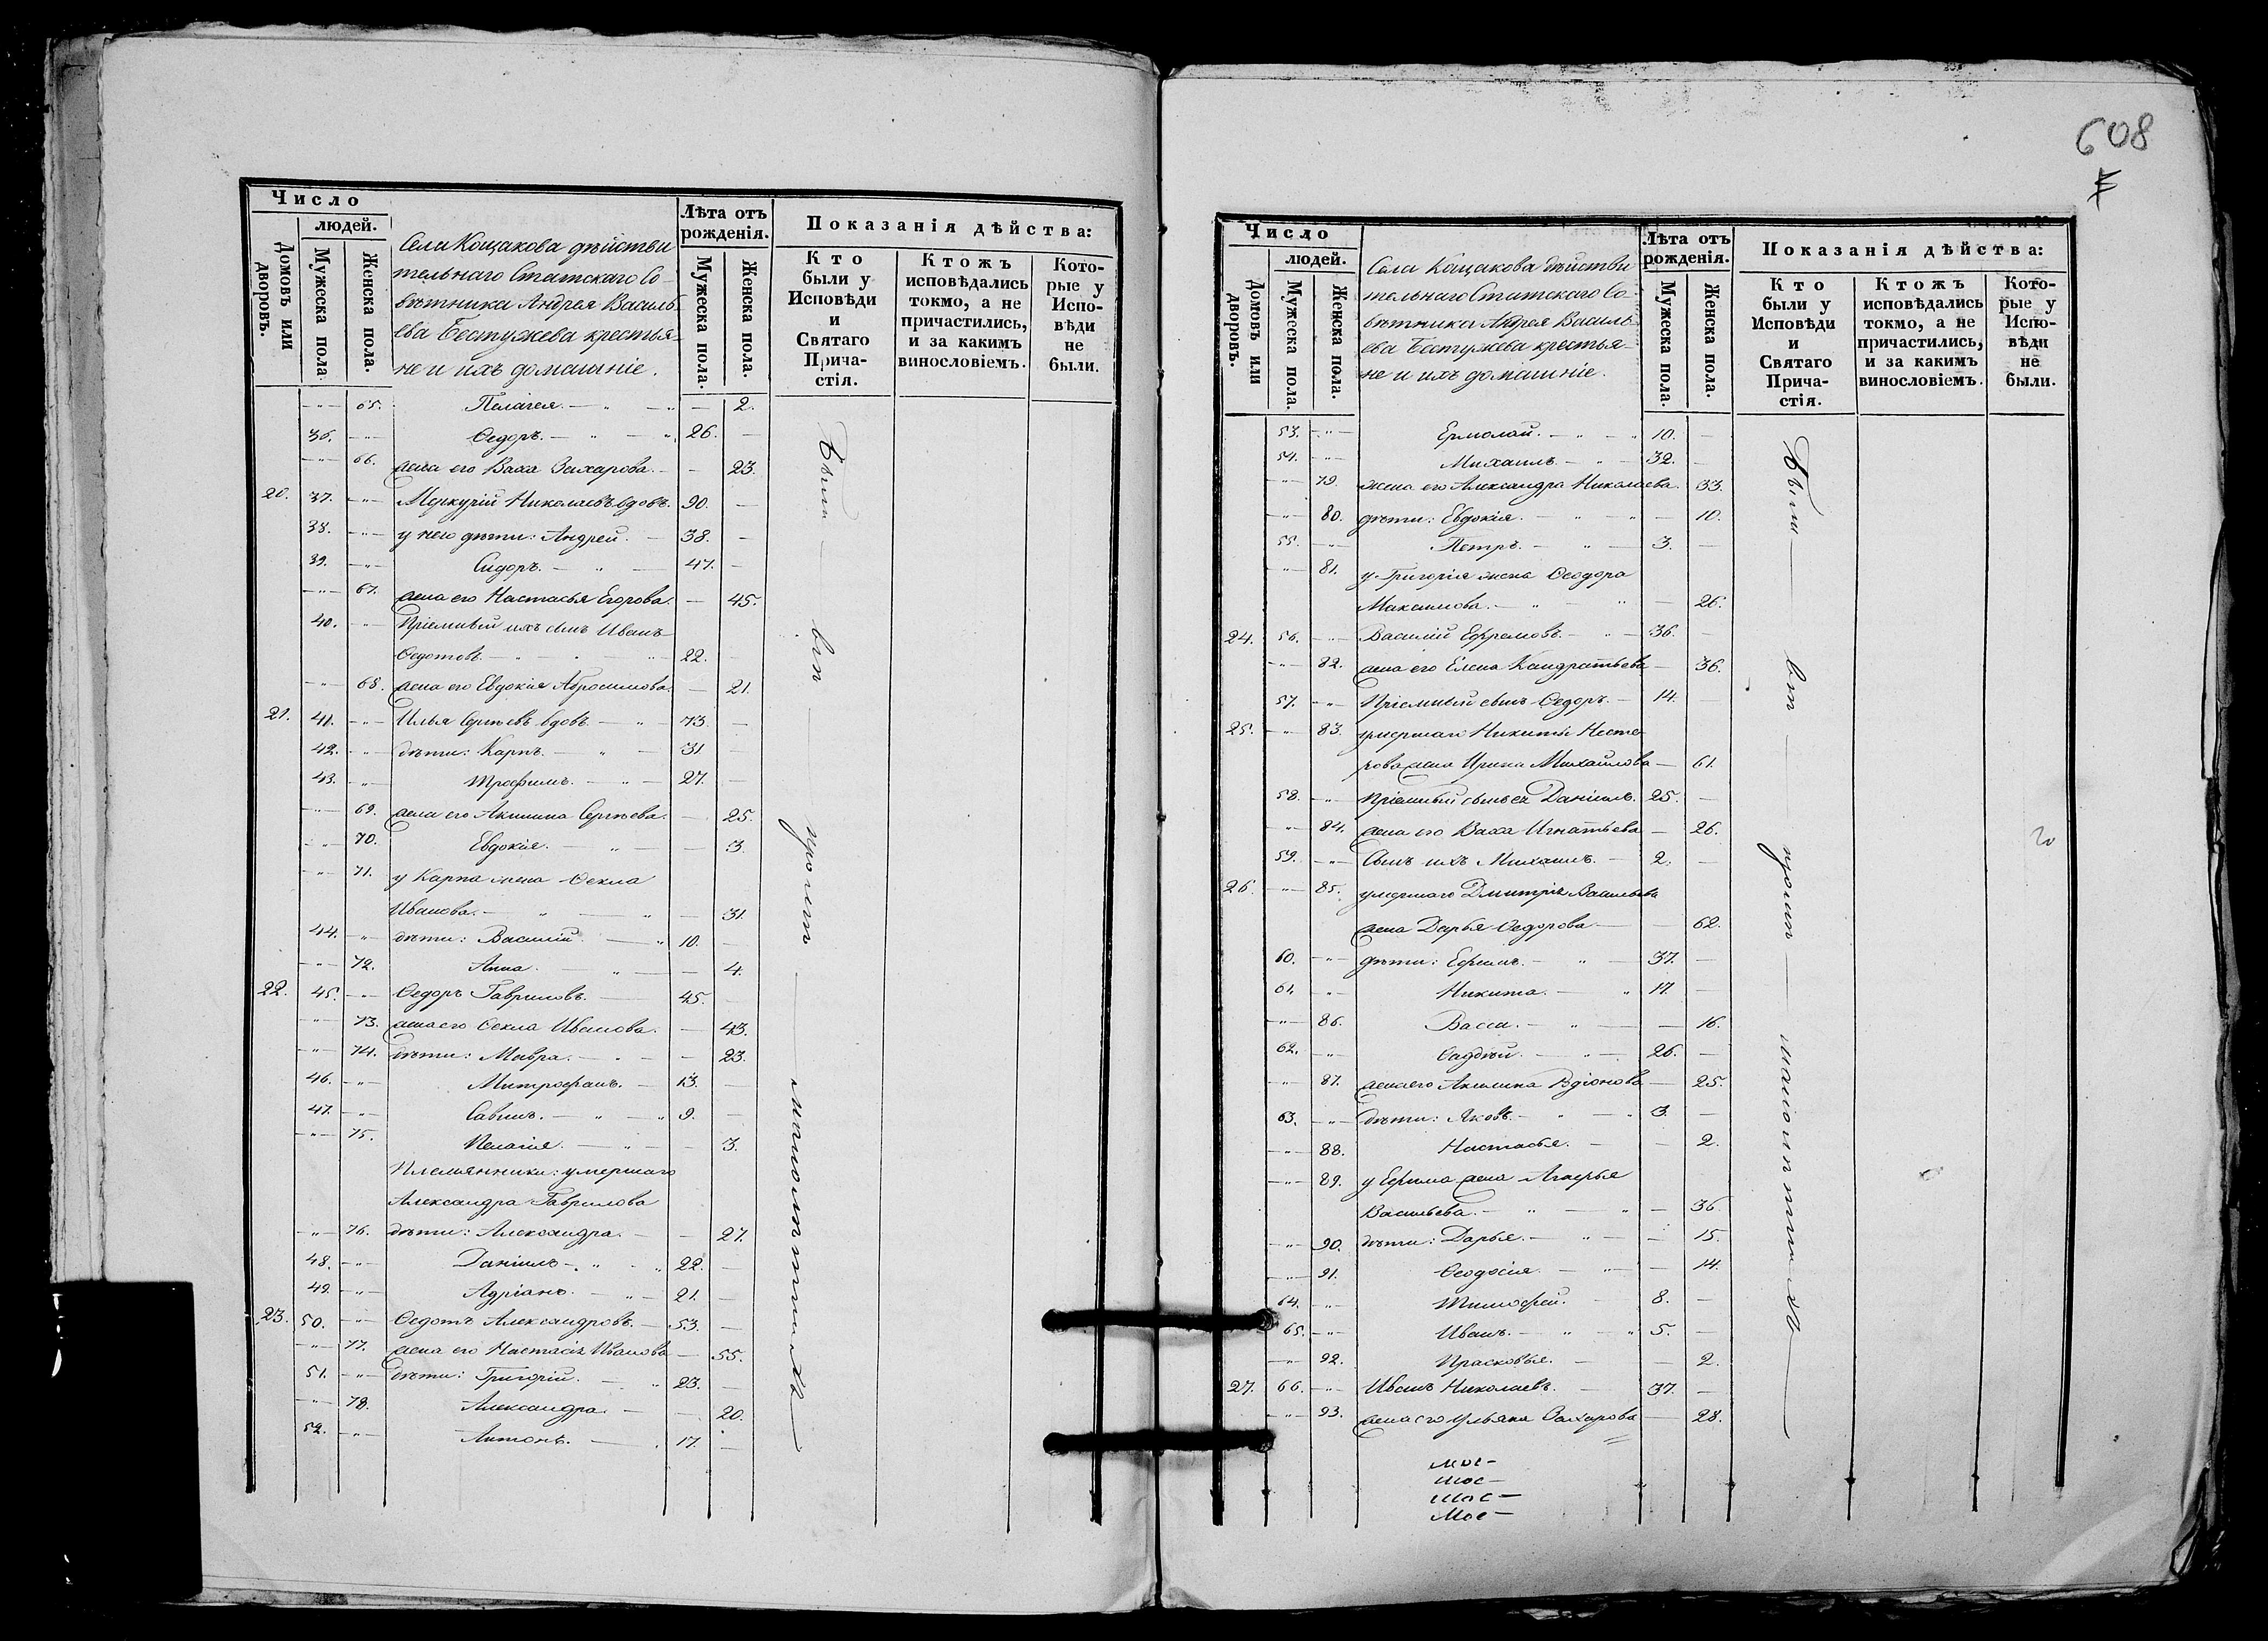 608
Число
людей.
Домовъ или дворовъ.
Мужеска пола.
Женска пола.
Села Кощакова дѣйстви
тельнаго Статскаго Со-
вѣтника Андрея Василь-
ева Бестужева крестья-
не и ихъ домашніе.
Лѣта отъ рожденія.
Мужеска пола.
Женска пола.
Показанія дѣйства:
Кто были у Исповѣди и Святаго Прича-стія.
Ктожъ исповѣдались токмо, а не причастились, и за какимъ винословіемъ.
Кото-рые у Испо-вѣди не были.
65. Пелагея. 2.
36. Ѳедоръ. 26.
66. жена его Васса Захарова. 23.
20. 37. Меркурій Николаевъ вдовъ. 90.
38. у него дѣти: Андрей. 38.
39. Сидоръ. 47.
67. жена его Настасья Егорова. 45.
40. Пріемный ихъ сынъ Иванъ
Ѳедотовъ 22.
68. жена его Евдокія Абросимова. 21.
21. 41. Илья Сергѣевъ вдовъ 73.
42. дѣти: Карпъ. 31
43. Трофимъ. 27.
69. жена его Акилина Сергѣева. 25.
70. Евдокія. 3.
71. у Карпа жена Ѳекла
Иванова. 31.
44. дѣти: Василій. 10.
72. Анна. 4.
22. 45. Ѳедоръ Гавриловъ. 45.
73. жена его Ѳекла Иванова. 43.
74. дѣти: Мавра. 23.
46. Митрофанъ. 13.
47. Савинъ. 9.
75. Пелагія. 3.
Племянники: умершаго
Александра Гаврилова
76. дѣти: Александра. 27.
48. Даніилъ 22.
49. Адріанъ. 21.
23. 50. Ѳедотъ Александровъ. 53.
77. жена его Настасія Иванова 55.
51. дѣти: Григорій. 23.
78. Александра. 20.
52. Антонъ. 17.
Были
Число
людей.
Домовъ или дворовъ.
Мужеска пола.
Женска пола.
Села Кощакова дѣйстви
тельнаго Статскаго Со-
вѣтника Андрея Василь-
ева Бестужева крестья-
не и ихъ домашніе.
Лѣта отъ рожденія.
Мужеска пола.
Женска пола.
Показанія дѣйства:
Кто были у Исповѣди и Святаго Прича-стія.
Ктожъ исповѣдались токмо, а не причастились, и за какимъ винословіемъ.
Кото-рые у Испо-вѣди не были.
53. Ермолай. 10.
54. Михаилъ. 32.
79. жена его Александра Николаева. 33.
80. дѣти: Евдокія. 10.
55. Петръ. 3.
81. у Григорія жена Ѳеодора
Максимова. 26.
24. 56. Василій Ефремовъ. 36.
82. жена его Елена Кандратьева 36.
57. Пріемный сынъ Ѳедоръ. 14.
25. 83. умершаго Никиты Несте
рова жена Ирина Михайлова 61.
58. Пріемный сынъ ея Даніилъ. 25.
84. жена его Васса Игнатьева 26.
59. Сынъ ихъ Михаилъ. 2.
26. 85. умершаго Дмитрія Васильева
жена Дарья Ѳедорова 62.
60. дѣти: Ефимъ. 37.
61. Никита. 17.
86. Васса. 16.
62. Ѳаддѣй. 26.
87. жена его Акилина Родіонова 25.
63. дѣти: Яковъ. 3.
88. Настасья. 2.
89. у Ефима жена Агафья
Васильева. 36.
90. дѣти: Дарья. 15.
91. Ѳеодосія. 14.
64. Тимофей. 8.
65. Иванъ. 5.
92. Прасковья. 2.
27. 66. Иванъ Николаевъ. 37.
93. жена его Ульяна Захарова 28.
Были